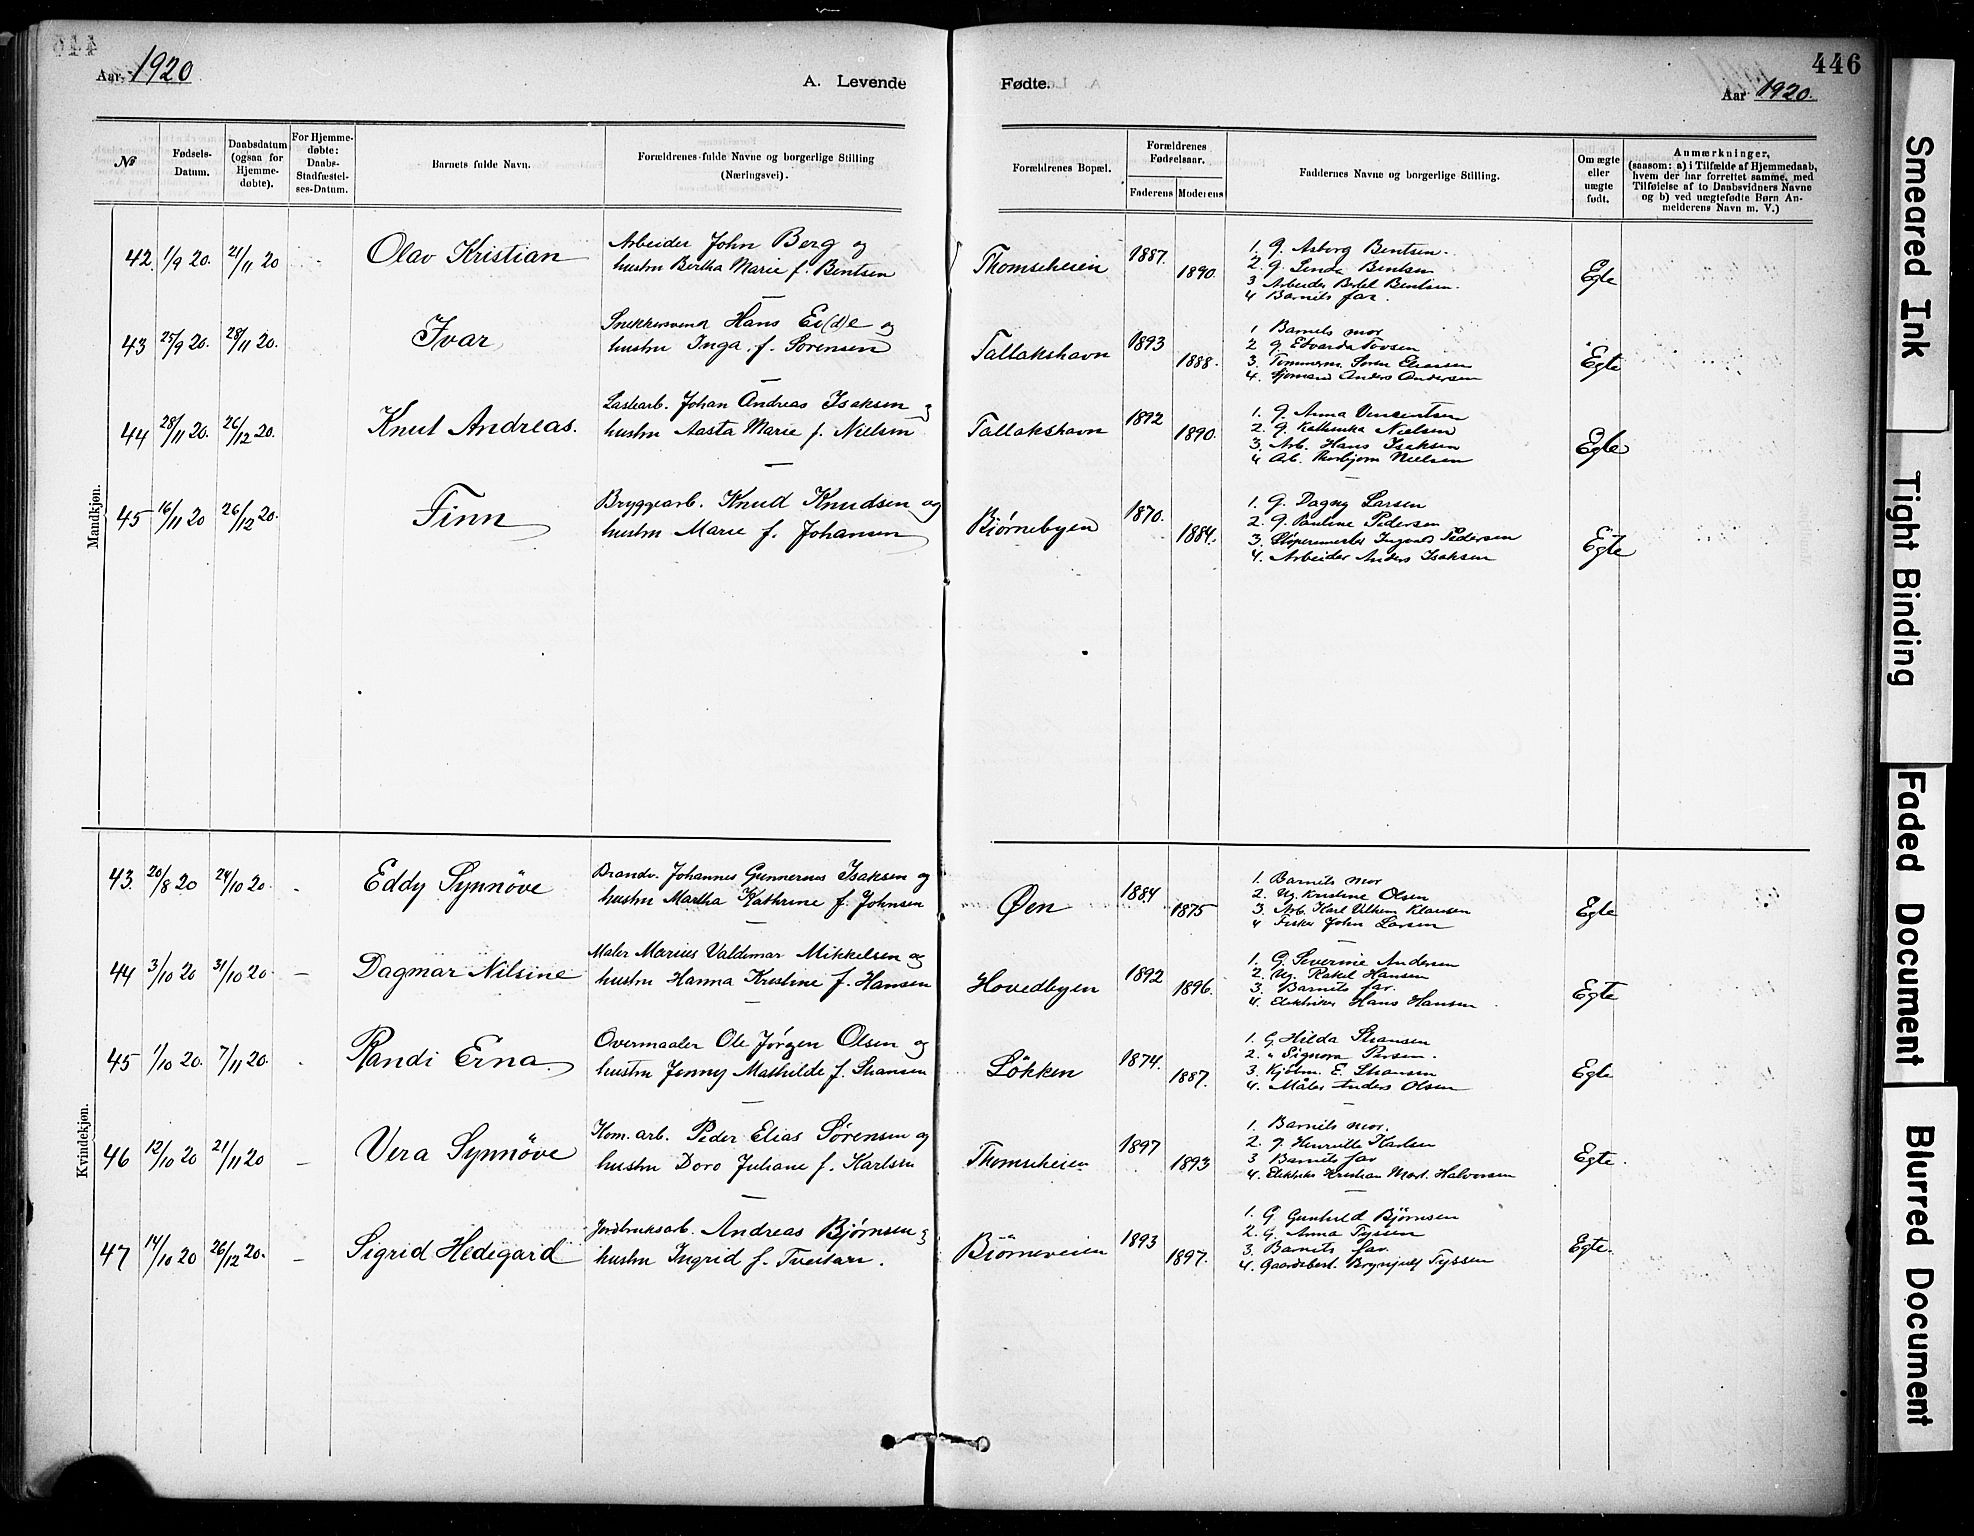 Aar 1920
A. Levende
Fødte.
446
Aar 1920.
№
Fødsels-
Datum.
Daabsdatum
(ogsaa for
Hjemme-
døbte).
For Hjemme-
døbte:
Daabs-
Stadfæstel-
ses-Datum.
Barnets fulde Navn.
Forældrenes fulde Navne og borgerlige Stilling
(Næringsvei).
Forældrenes Bopæl.
Forældrenes
Fødselsaar.
Faderens
Moderens
Faddernes Navne og borgerlige Stilling.
Om ægte
eller
uægte
født.
Anmærkninger,
(saasom: a) i Tilfælde af Hjemmedaab,
hvem der har forrettet samme, med
Tilføielse af to Daabsvidners Navne
og b) ved uægtefødte Børn An-
melderens Navn m. V.)
Mandkjøn.
42. 1/9 20. 21/11 20 Olav Kristian
Arbeider John Berg og
hustru Bertha Marie f. Bentsen
Thomseheien 1887. 1890.
1. G. Asborg Bentsen.
2. G. Bentsen
3 Arbeider Bertel Bentsen.
4 Barnets far.
Egte
43 25/9 20. 28/11 20. Ivar
Snekkersvend Hans Ei(d)e og
hustru Inga f. Sørensen
Tallakshavn 1893 1888.
1 Barnets mor
2 G. Edvarda Tovsen
3. Tømmerm. Søren
4. Sjømand Anders Andersen
Egte
44 28/11 20. 26/12 20. Knut Andreas.
Lastearb. Johan Andreas Isaksen og
hustru Aasta Marie f. Nielsen
Tallakshavn 1892 1890.
1. G. Anna Vincentsen
2. G. Kathinka Nielsen
3. Arb. Hans Isaksen
4 Arb. Thorbjørn Nielsen
Egte
45 16/11 20 26/12 20. Finn
Bryggearb. Knud Knudsen og
hustru Marie f. Johansen
Bjørnebyen 1870. 1884.
1. G. Dagny Larsen
2. G. Pauline Pedersen
3. Støperimester Ingvald Pedersen
4. Arbeider Anders Isaksen
Egte
Kvindekjøn.
43. 20/8 20 24/10 20. - Eddy Synnöve
Brandv. Johannes Gunnerius Isaksen og
hustru Martha Kathrine f. Johnsen
Øen 1884 1875
1. Barnets mor
2. Ug. Kristine Olsen
3. Arb. Karl Vilhem Klausen
4 Fisker John Larsen
Egte
44 3/10 20 31/10 20. - Dagmar Nilsine
Maler Marius Valdemar Mikkelsen og
hustru Hanna Kristine f. Hansen
Hovedbyen 1892 1896.
1. G. Severine Andersen
2. Ug. Rakel Hansen
3. Barnets far.
4. Elektriker Hans Hansen
Egte
45 1/10 20. 7/11 20. Randi Erna.
Overmaaler Ole Jørgen Olsen og
hustru Jenny Mathilde f.
Løkken 1874. 1887.
1. G. Hilda
2. "
3.
4. Måler Anders Olsen
Egte
46 12/10 20 21/11 20 - Vera Synnöve
Kom. arb. Peder Elias Sørensen og
hustru Doro Juliane f. Karlsen
Thomseheien 1897 1893
1. Barnets mor.
2. G. Henriette Karlsen
3 Barnets far
4. Elektriker Kristian Mart. Halvorsen
Egte.
47 14/10 20 26/12 20. - Sigrid Hedegard
Jordbruksarb. Andreas Bjørnsen og
hustru Ingrid f. Tveitan.
Bjørneveien 1893 1897.
1. G Gunhild Bjørnsen
2. G. Anna Tyssen
3. Barnets far
4. Gaardsbest. Brynjulf Tyssen
Egte.
Smeared Ink
Tight Binding
Faded Document
Blurred Document